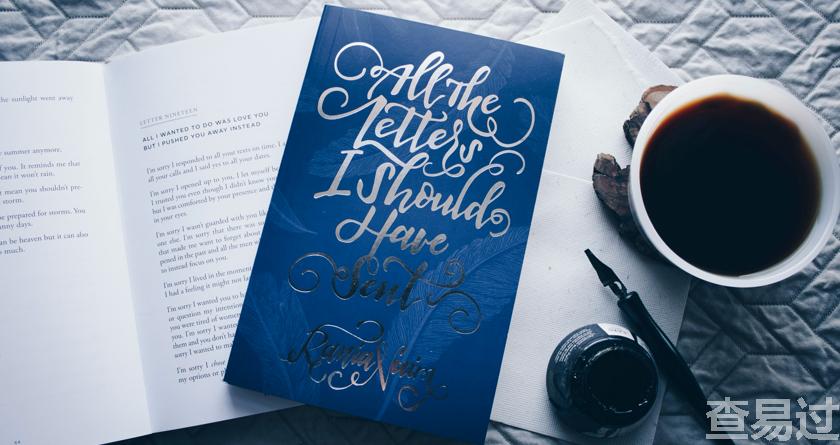 the sunlight went away
summer anymore.
of you. It reminds me that
ean it won't rain.
t mean you shouldn't pre-
storm.
be prepared for storms. You
unny days.
an be heaven but it can also
o much.
64
LETTER NINETEEN
ALL I WANTED TO DO WAS LOVE YOU
BUT I PUSHED YOU AWAY INSTEAD
I'm sorry I responded to all your texts on time. I a
all your calls and I said yes to all your dates.
I'm sorry I opened up to you. I let myself be
I trusted you even though I didn't know you
but I was comforted by your presence and th
in your eyes.
I'm sorry I wasn't guarded with you like
one else. I'm sorry that there was so
that made me want to forget about
pened in the past and all the men w
to instead focus on you.
I'm sorry I lived in the moment
I had a feeling it might not las
I'm sorry I wanted you to h
or question my intention
you were tired of women
them and you don't ha
sorry I wanted to ma
I'm sorry I chose
my options or p
All the
Letters
I Should
Have
Sent
Rania Naim
查易过